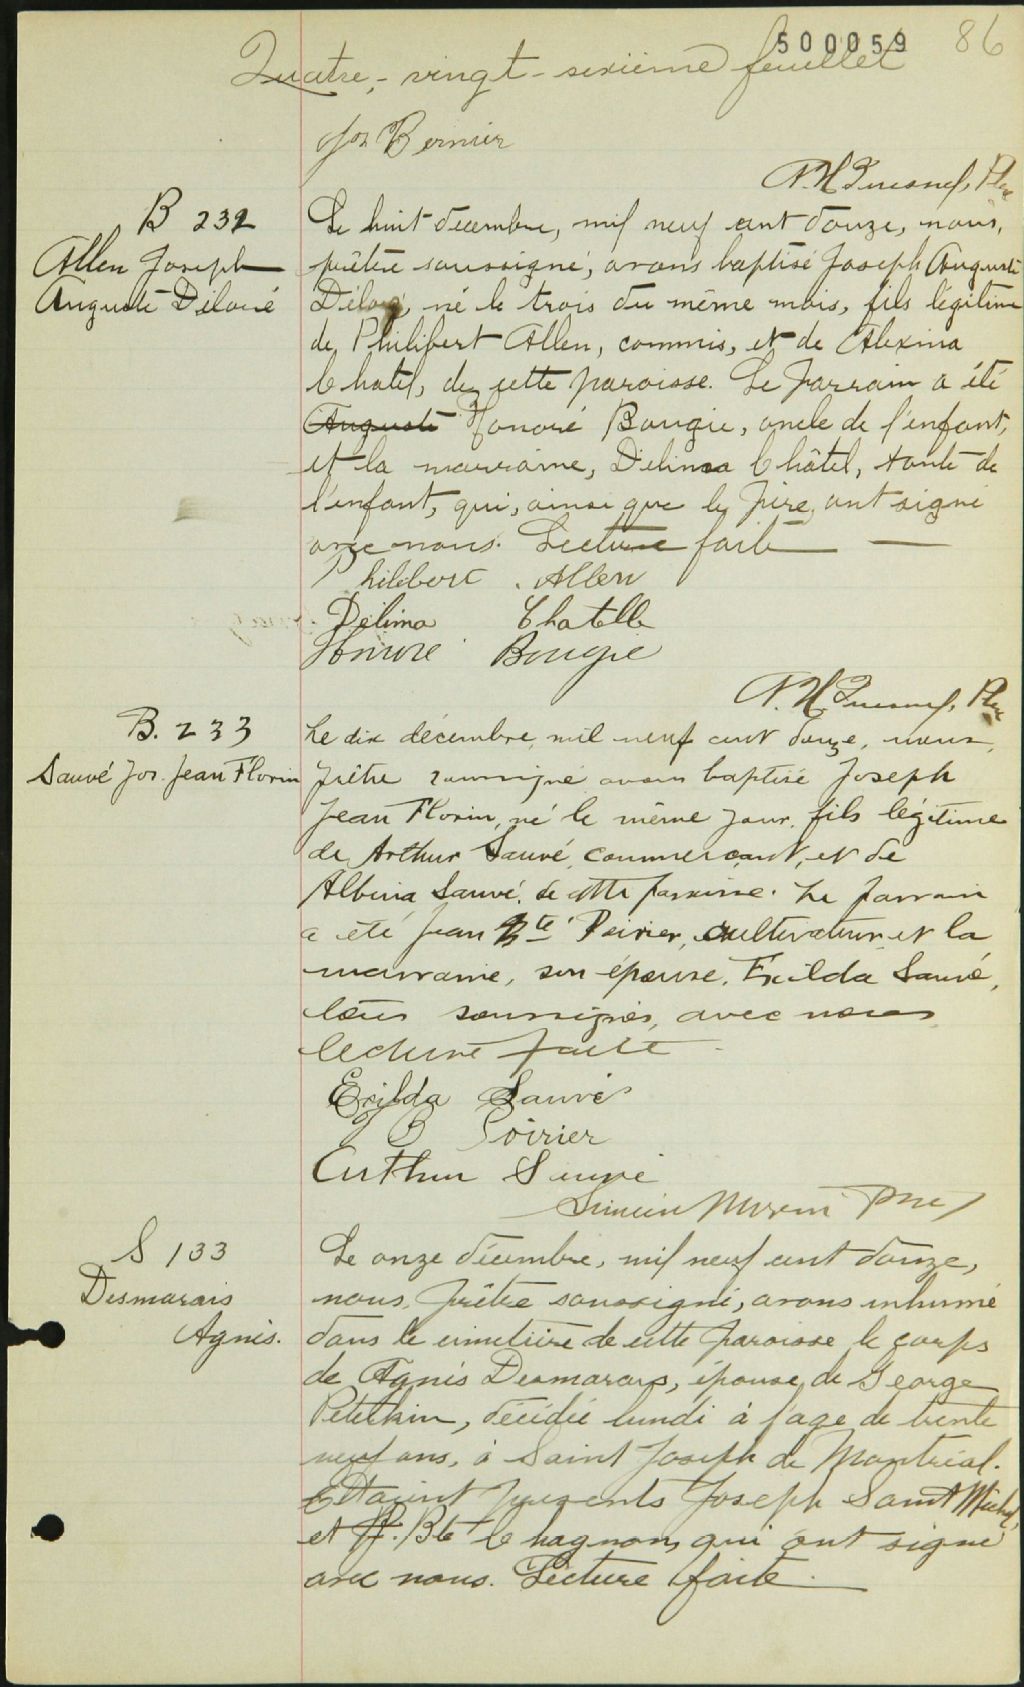 500059 86
Quatre-vingt-sixième feuillet
Jos Bernier
Ptre
B 232
Allen Joseph
Auguste Déloré
Le huit décembre, mil neuf cent douze, nous,
prêtre soussigné, avons baptisé Joseph Auguste
né le trois du même mois, fils légitime
de Philibert Allen, commis, et de Alexina
Chatel, de cette paroisse. Le parrain a été
Auguste Honoré Bougie, oncle de l'enfant,
et la marraine, Délima Châtel, tante de
l'enfant, qui, ainsi que le père, ont signé
avec nous. Lecture faite
Philibert Allen
Délima Chatelle
Honoré Bougie
Ptre
B. 233
Sauvé Jos. Jean Florin
Le dix décembre, mil neuf cent douze, nous,
prêtre soussigné avons baptisé Joseph
Jean Florin, né le même jour, fils légitime
de Arthur Sauvé, commerçant, et de
Albina Sauvé, de cette paroisse. Le parrain
a été Jean Bte Poirier, cultivateur et la
marraine, son épouse, Exilda Sauvé,
soussignés, avec nous
lecture faite
Exilda Sauvé
J B Poirier
Arthur Sauvé
Ptre
S 133
Desmarais
Agnès.
Le onze décembre, mil neuf cent douze,
nous, prêtre soussigné, avons inhumé
dans le cimetière de cette paroisse le corps
de Agnès Desmarais, épouse de George
décédée lundi à l'age de trente
neuf ans, à Saint Joseph de Montréal.
Etaient présents Joseph Saint Michel,
et Bte Chagnon, qui ont signé
avec nous. Lecture faite.